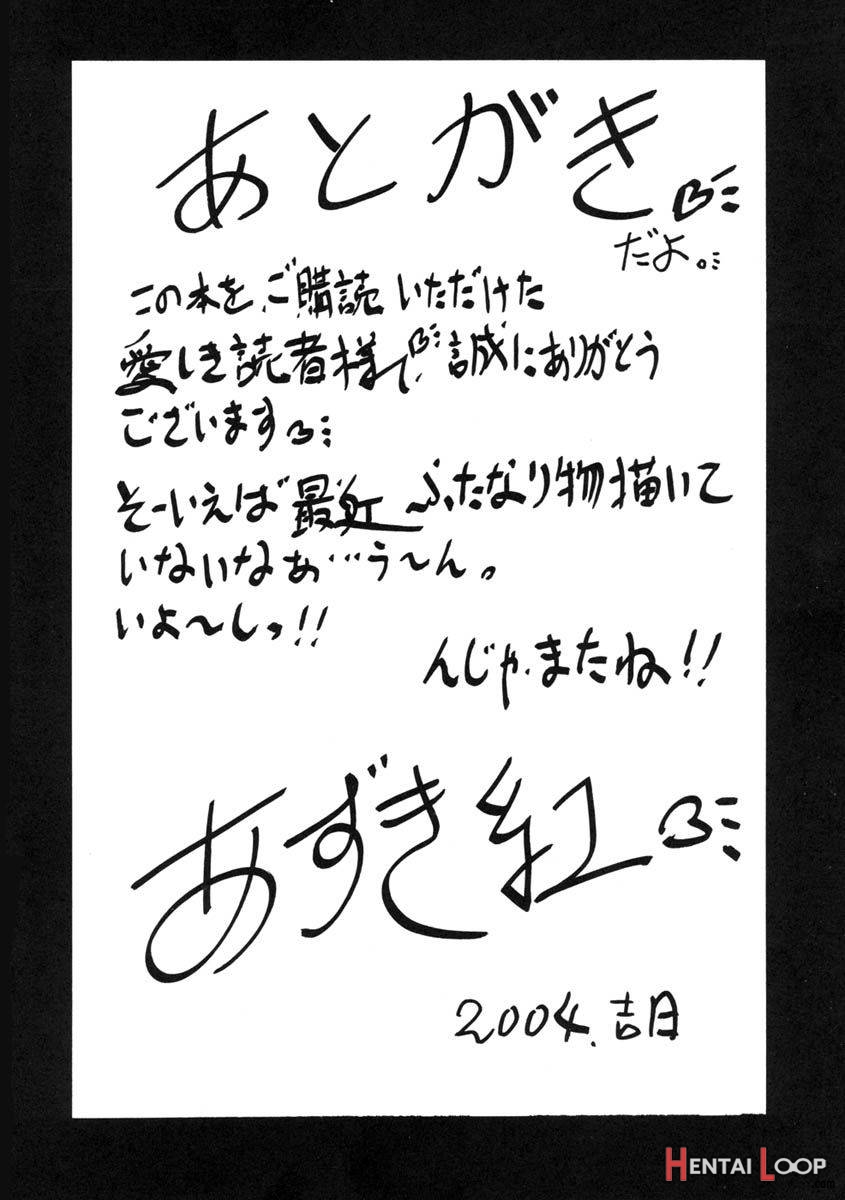 あとがき
だよ。
この本をご購読いただけた
愛しき読者様♡誠にありがとう
ございます
そーいえば最近ふたなり物描いて
いないなぁ…う〜ん。
いよ〜しっ!!
んじゃまたね!!
あずき紅
2004.吉日
HENTAI LOOP
.com